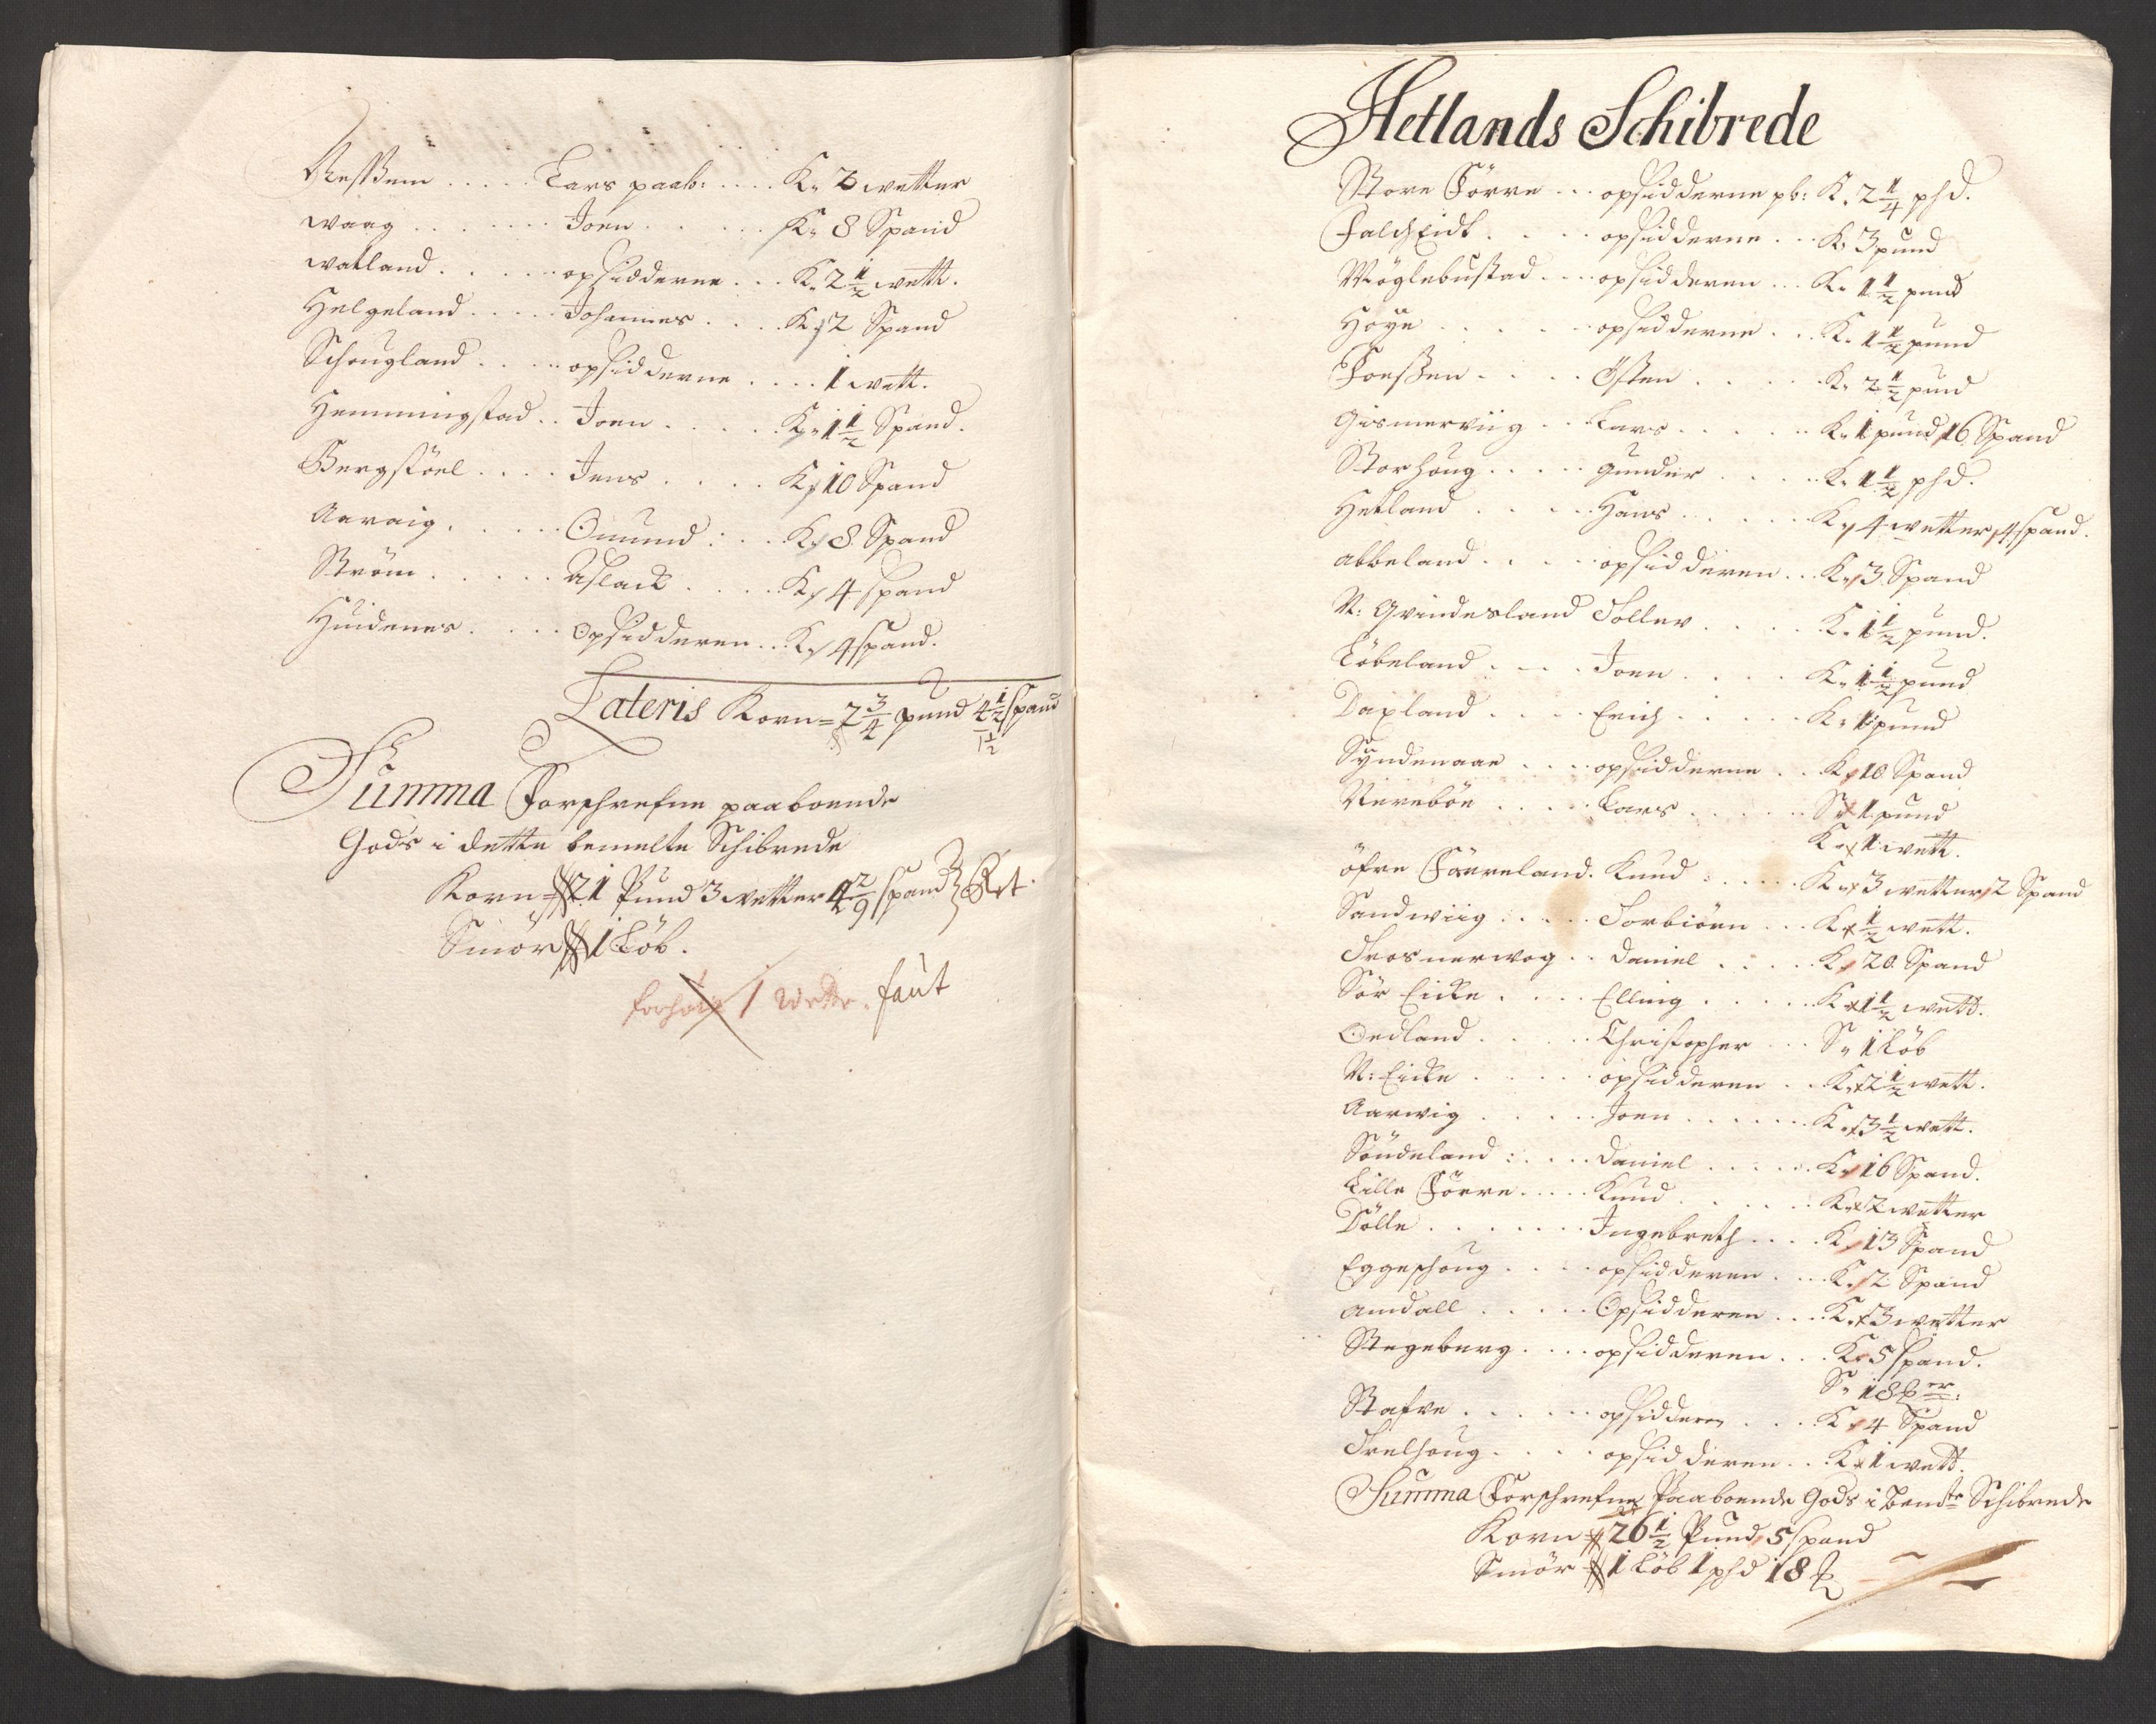 Lars paab: . . . . K. 2 wetter
waag . . . . . . . Joen . . . . . . K. 8 Spand
watland . . . . . opsidderne . . . K. 2 1/2 wett.
Helgeland . . . . . Johannes . . . . K. 2 Spand
Schougland . . . . opsidderne . . . . 1 wett.
Hemmingstad . . Joen . . . . K. 1 1/2 Spand.
Bergstöel . . . . Jens . . . . K. 10 Spand
Aaraig . . . . . Omund : . . K. 8 Spand
Ström . . . . . Aslack . . . . K. 4 spand
Huidenes . . . . opsidderen . . K. 4 spand.
Lateris Korn = 2 3/4 pund 4 1/2 spand
1 1/2
Summa Forschrefne paaboende
Gods i dette bemelte Schibrede
Korn 21 Pund 3 wetter 4 2/9 spand
Smör 1 Löb.
1 Wette. faut
Hetlands Schibrede
Store Förre . . . opsidderne pb: K. 2 1/4 phd.
Falcheidt . . . . opsidderne . . . K. 3 pund
Möglebustad . . . opsidderen . . . K. 1 1/2 pund
Höye . . . . . . opsidderne . . . K. 1 1/2 pund
Foessen . . . . Östen . . . . . K. 2 1/2 pund
Gismerviig . . Lars . . . . . . K. 1 pund 16 Spand
Storhoug . . . . . Gunder . . . . . K. 1 1/2 phd.
Hetland . . . . . Hans . . . . . K. 4 wetter, 4 spand.
abbeland . . . . opsidderen . . K. 3 Spand
N: Qvindesland Tollev . . . . K. 1 1/2 pund.
Löbeland . . . . Joen . . . . . K. 1 1/2 pund
Dapland . . . . Erich . . . . . K. 1 pund
Syndenaae . . . . opsidderne . . K. 10 Spand
Virebön . . . . Lars . . . . . S. 1 pund
K. 1 wett.
öfre Föereland. Knud : . . . . K. 3 wetter, 2 Spand
Sandwiig . . . . Torbiörn . . . K. 1/2 wett.
Trosnerwog . . Daniel . . . . K. 20 Spand
Sör Eicke . . . . Elling . . . . . K. 1 1/2 wett.
Oedland . . . . . Christopher . . . S. 1 Löb
N: Eicke . . . . . opsidderen . . K. 2 1/2 wett.
Aarwig . . . . . Joen . . . . . . K. 3 1/2 wett.
Söndeland : . . . Daniel . . . . . K. 16 Spand.
Lille Förre . . . . Knud . . . . . . K. 2 wetter
Dölle . . . . . . . Ingebreth . . . . K. 13 Spand
Eggeshoug . . . . opsidderen . . . K. 2 Spand
Amdall . . . . . Opsidderen . . . K. 3 wetter
Stegeberg . . . . opsidderen . . . K. 5 spand.
S. 18
Stafre . . . . . . opsidderen . . . K. 4 Spand
Trelhoug . . . . opsidderen . . K. 1 wett.
Summa Forschrefne Paaboende Gods i Bemte Schibrede
Korn 26 1/2 Pund, 5 spand
Smör 1 Löb 1 phd 18